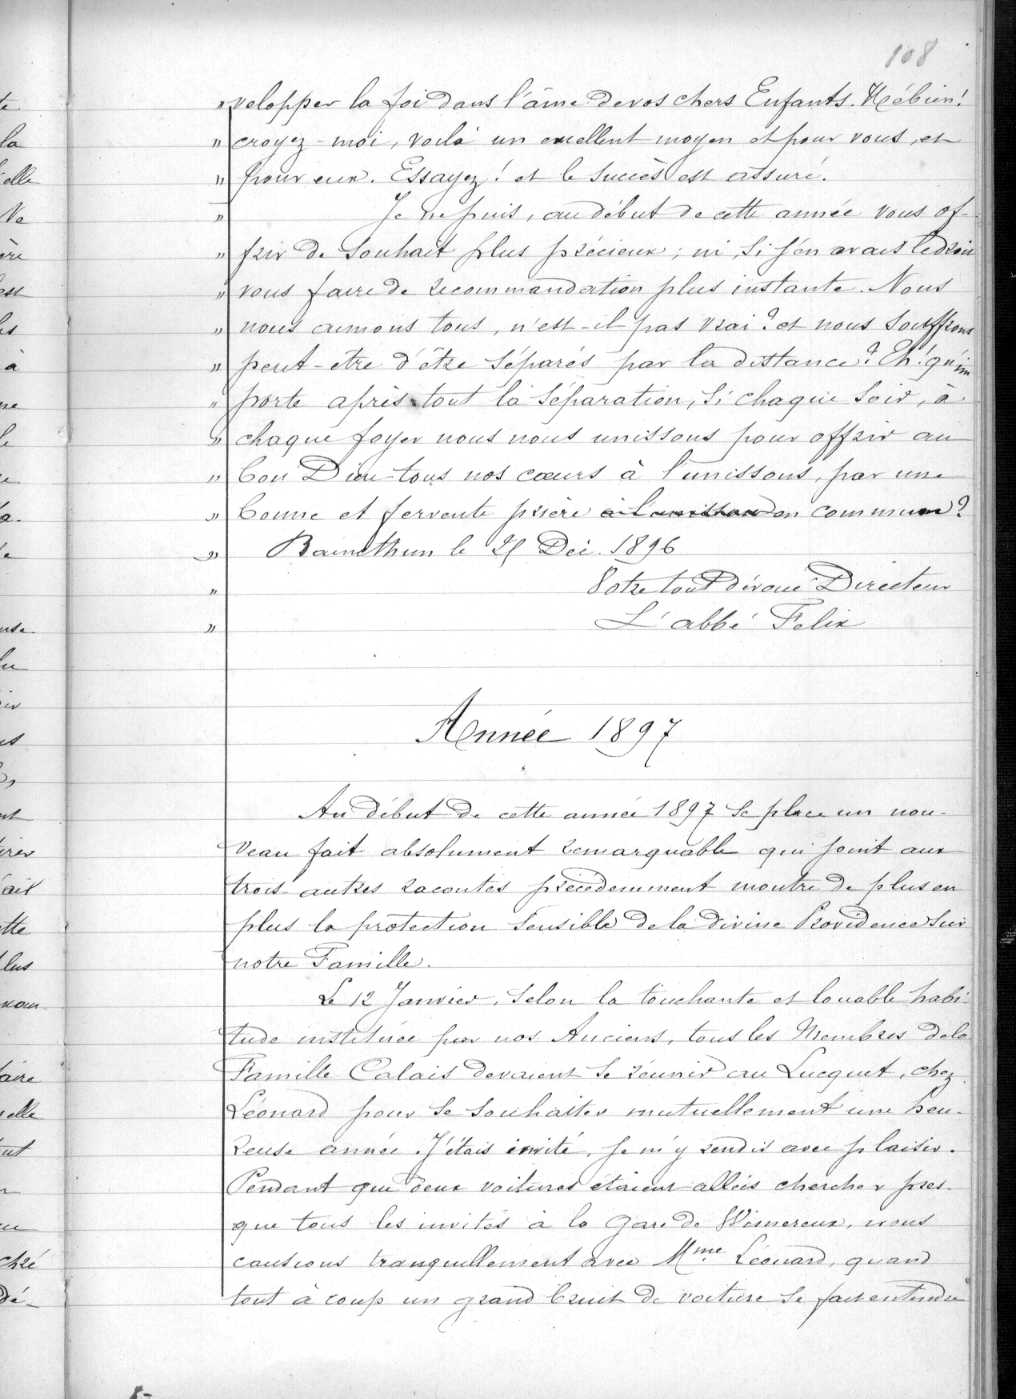 108
" velopper la foi dans l'âme de vos chers Enfants. Hébien!
" croyez-moi, voilà un excellent moyen et pour vous, et
" pour eux. Essayez! et le succès est assuré.
" Je ne puis, au début de cette année vous of-
" frir de souhait plus précieux; ni, si j'en avais le droit
" vous faire de recommandation plus instante. Nous
" nous aimons tous, n'est-il pas vrai? et nous souffrons
" peut-etre d'être séparés par la distance? Eh! qu'im
" porte après tout la séparation, si chaque soir, à
" chaque foyer nous nous unissons pour offrir au
" bon Dieu tous nos cœurs à l'unissons, par une
" bonne et fervente prière en commun?
" Bainethun le 21 Déc. 1896
" Votre tout dévoué Directeur
" L'abbé Felix
Année 1897
Au début de cette année 1897 se place un nou-
veau fait absolument remarquable qui joint aux
trois autres racontés précédemment montre de plus en
plus la protection sensible de la divine Providence sur
notre Famille.
Le 12 Janvier, selon la touchante et louable habi-
tude instituée par nos Anciens, tous les Membres de la
Famille Calais devaient se réunir au Lucquet, chez
Léonard pour se souhaiter mutuellement une heu-
reuse année. J'étais invité, je m'y rendis avec plaisir.
Pendant que deux voitures étaient allées chercher pres-
que tous les invités à la Gare de Wimereux, nous
causions tranquillement avec Mme Léonard, quand
tout à coup un grand bruit de voiture se fait entendre